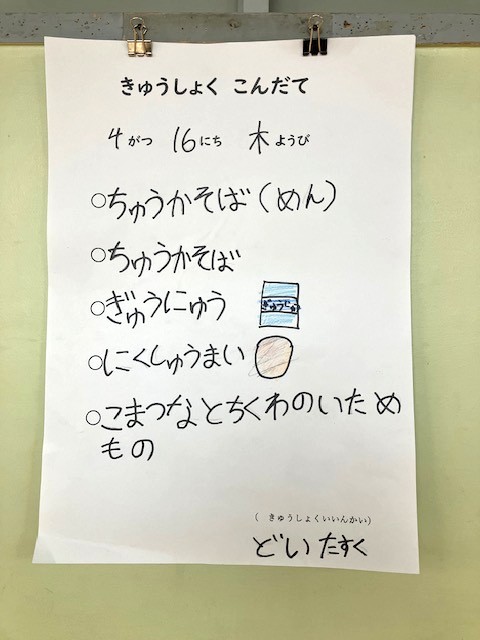 きゅうしょく こんだて
4がつ 16にち 木ようび
○ちゅうかそば(めん)
○ちゅうかそば
○ぎゅうにゅう
ぎゅうにゅう
○にくしゅうまい
○こまつなとちくわのいため
もの
( きゅうしょくいいんかい)
どい たすく